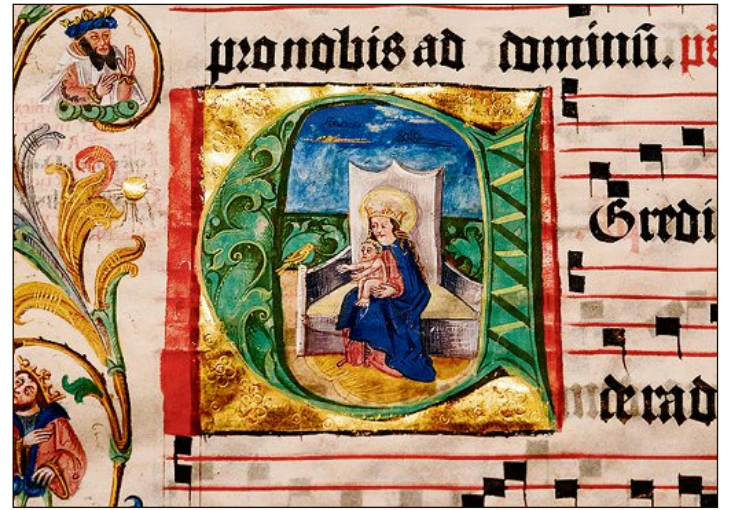 pro nobis ad dominū. ps̄
Gredi
de rad